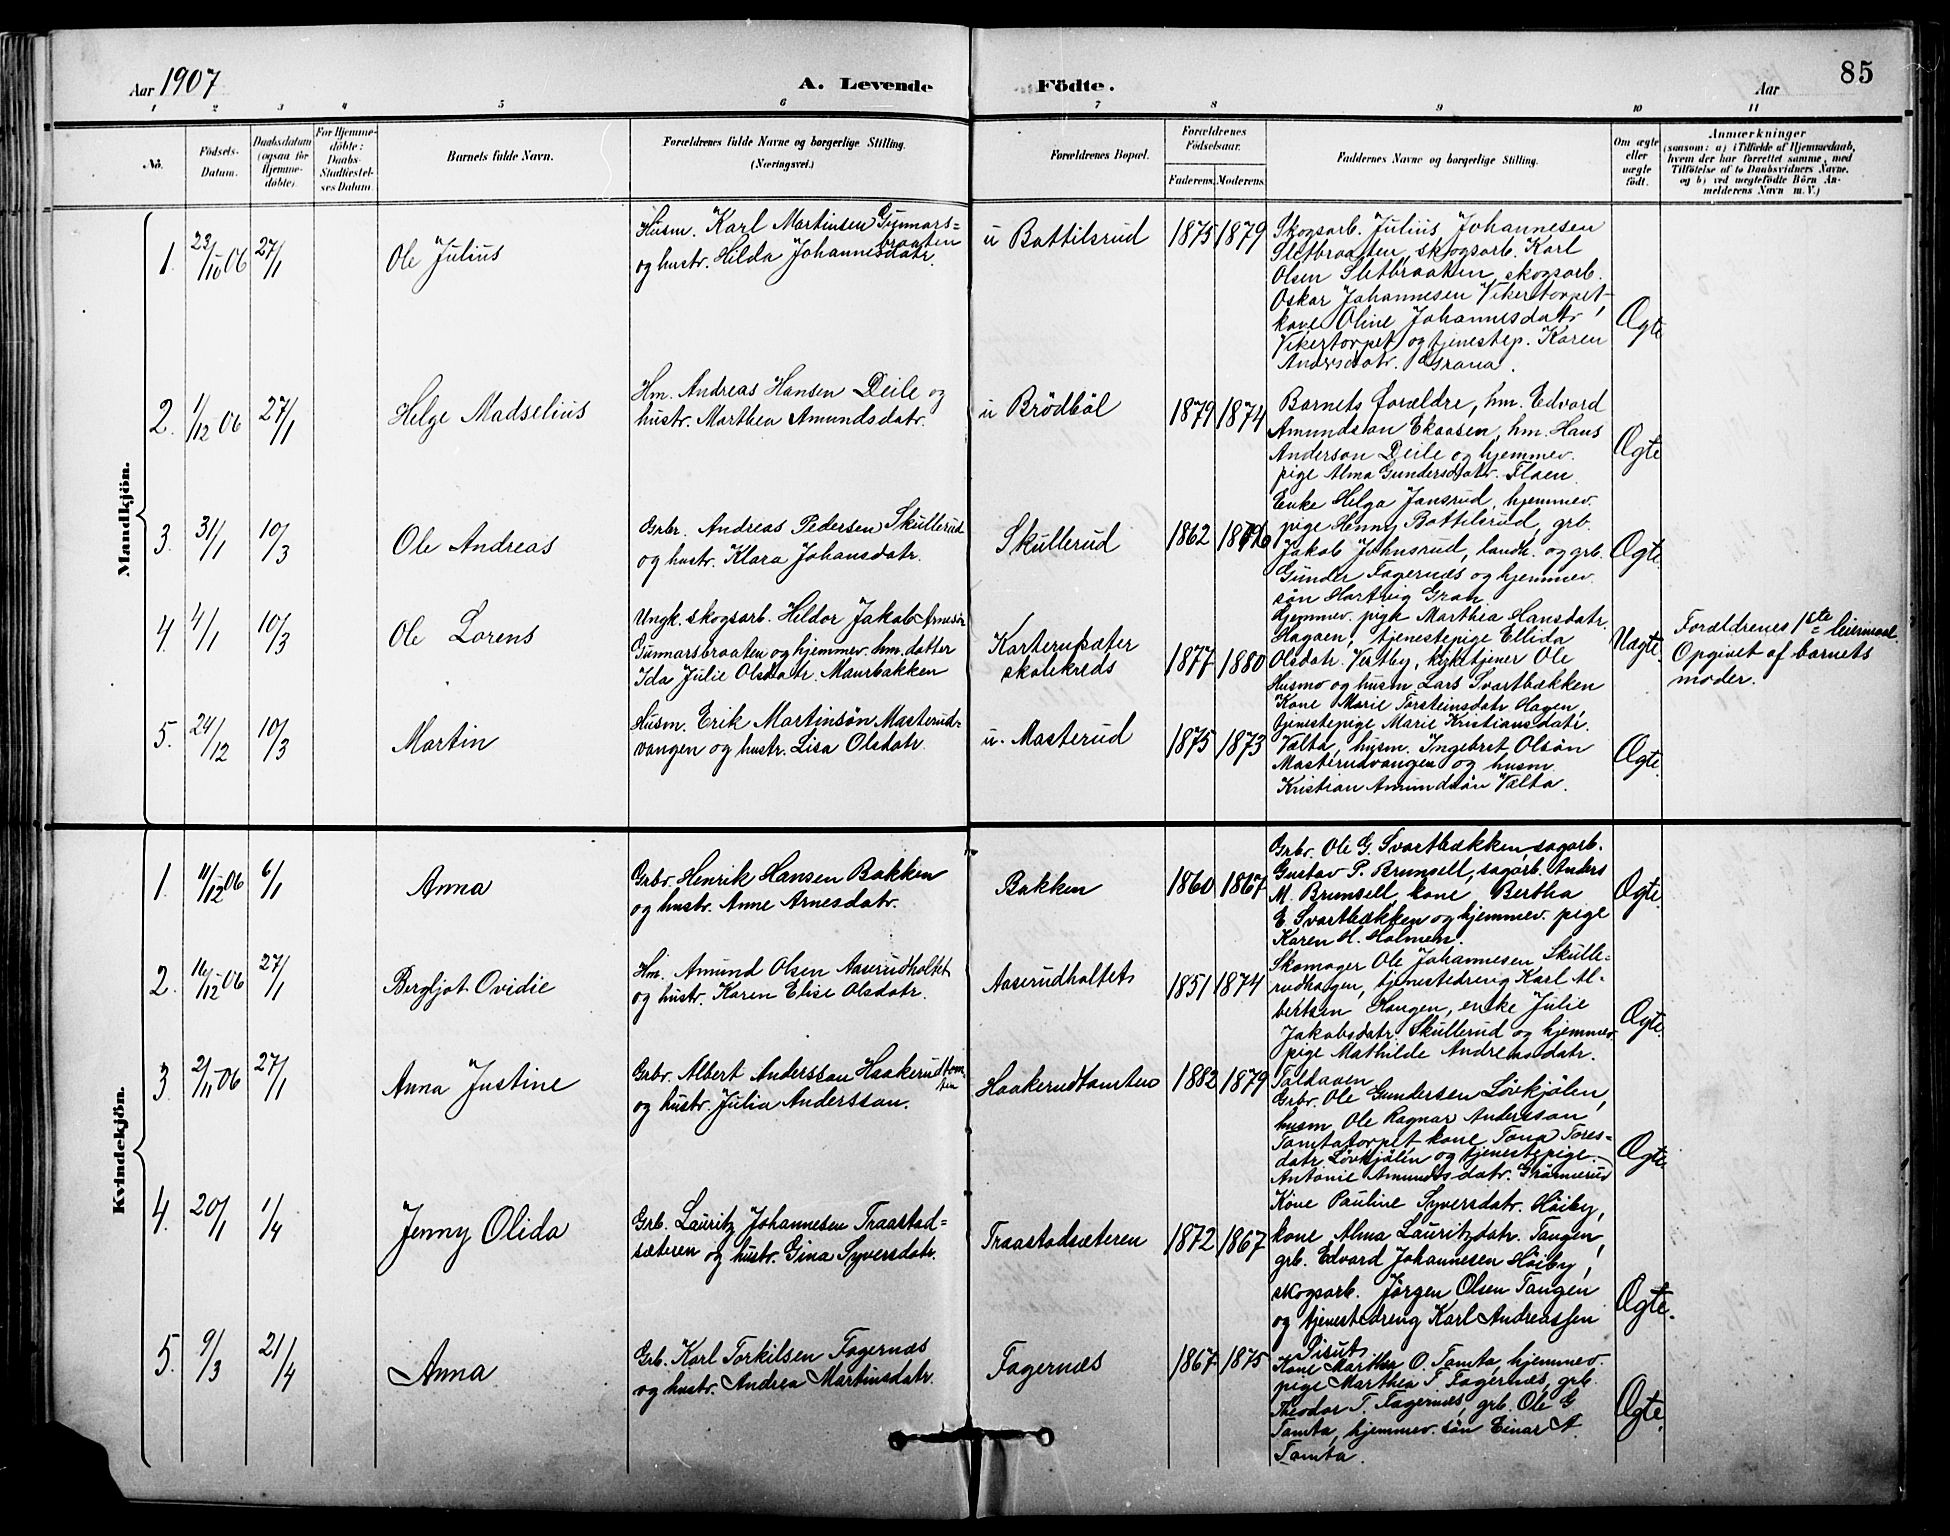 Aar 1907
A. Levende Födte.
Aar
85
1 2 3 4 5 6 7 8 9 10 11
No.
Födsels-
Datum.
Daabsdatum
(ogsaa for
Hjemme-
döbte).
For Hjemme-
döbte:
Daabs-
Stadfæstel-
ses Datum.
Barnets fulde Navn.
Forældrenes fulde Navne og borgerlige Stilling.
(Næringsvei.)
Forældrenes Bopæl.
Forældrenes
Födselsaar.
Faderens. Moderens.
Faddernes Navne og borgerlige Stilling.
Om ægte
eller
uægte
født.
Anmærkninger
(saasom: a) i Tilfælde af Hjemmedaab,
hvem der har forrettet samme, med
Tilføielse af to Daabsvidners Navne.
og b) ved uægtefødte Börn An-
melderens Navn m. V.)
Mandkjön.
1. 23/10 06 27/1
Ole Julius
Husm. Karl Martinsen Gunnars-
braaten
og hustr. Hilda Johannesdatr.
u Battilsrud
1875 1879
Skogsarb. Julius Johannesen
Sletbraaten, skogsarb. Karl
Olsen Sletbraaten, skogsarb.
Oskar Johannesen Vikertorpet
kone Oline Johannesdatr
Vikertorpet og tjenestep. Karen
Andersdatr. Grana.
Ægte
2. 1/12 06 27/1
Helge Madselius
Hm. Andreas Hansen Deile og
hustr. Marthea Amundsdatr.
u Brödböl
1879 1874
Barnets forældre, hm. Edvard
Amundsøn Ekaasen, hm. Hans
Andersøn Deile og hjemmev.
pige Alma Gundersdatr. Flaen
Ægte
3. 31/1 10/3
Ole Andreas
Grbr. Andreas Pedersen Skullerud
og hustr. Klara Johansdatr.
Skullerud
1862
Enke Helga Jansrud, hjemmev.
pige Henny Battilsrud, grb.
Jakob Johnsrud, landh. og grb.
Gunder Fagernæs og hjemmev.
søn Hartvig Gran
Ægte
4. 4/1 10/3
Ole Lorens
Ungk. skogsarb. Hildor Jakob Arnesøn
Gunnarsbraaten og hjemmev. hm. datter
Ida Julie Olsdatr. Maurbakken
Karterudsæter
skolekreds
1877 1880
Hjemmev. pige Marthea Hansdatr.
Hagaen, tjenestepige Ellida
Olsdatr. Vestby, kirketjener Ole
Husmo og husm. Lars Svartbækken
Uægte.
Forældrenes 1ste leiermaal.
Opgivet af barnets
moder.
5. 24/12 10/3
Martin
Husm. Erik Martinsøn Masterud-
vangen og hustr. Lisa Olsdatr.
u. Masterud
1875 1873
Kone Marie Torsteinsdatr Hagen,
tjenestepige Marie Kristiansdatr.
Vælta, husm. Ingebret Olsøn
Masterudvangen og husm
Kristian Amundsøn Vælta.
Ægte.
Kvindekjön.
1. 11/12 06 6/1
Anna
Grbr. Henrik Hansen Bakken
og hustr. Anne Arnesdatr.
Bakken
1860 1867
Grbr. Ole G. Svartbækken, sagarb.
Gustav P. Brunsell, sagarb. Anders
M. Brunsell, kone Bertha
E. Svartbækken og hjemmev. pige
Karen H. Holmen.
Ægte.
2. 16/12 06 27/1
Bergljot Ovidie
Hm. Amund Olsen Aaserudholtet
og hustr. Karen Elise Olsdatr.
Aaserudholtet
1851 1874
Skomager Ole Johannesen Skulle-
rudhagen, tjenestedreng Karl Al-
bertsen Haugen, enke Julie
Jakobsdatr. Skullerud og hjemmev
pige Mathilde Andreasdatr.
Taldaaen
Ægte.
3. 2/11 06 27/1
Anna Justine
Grbr. Albert Anderssøn Haakerudtom-
ten
og hustr. Julia Anderssøn.
Haakerudtomten
1882 1879
Grbr. Ole Gundersen Lövkjölen,
husm Ole Ragnar Andersson
Tomtatorpet kone Tona Tores-
datr Lövkjölen og tjenestepige
Antonie Amundsdatr.
Ægte.
4. 20/1 1/4
Jenny Olida
Grb. Lauritz Johannesen Traastad-
sæteren og hustr. Gina Syversdatr.
Traastadsæteren
1872 1867
Kone Pauline Syversdatr. Höiby,
kone Alma Lauritzdatr. Tangen,
grb. Edvard Johannesen Höiby,
skogsarb. Jörgen Olsen Tangen
og tjenestedreng Karl Andreassen
Ægte.
5. 9/3 21/4
Anna
Grb. Karl Torkilsen Fagernæs
og hustr. Andrea Martinsdatr.
Fagernæs
1867 1875
Kone Marthea O. Tomta, hjemmev.
pige Marthea T. Fagernæs, grb.
Theodor T. Fagernæs, grb. Ole G
Tomta, hjemmev. søn Einar A.
Tomta.
Ægte.